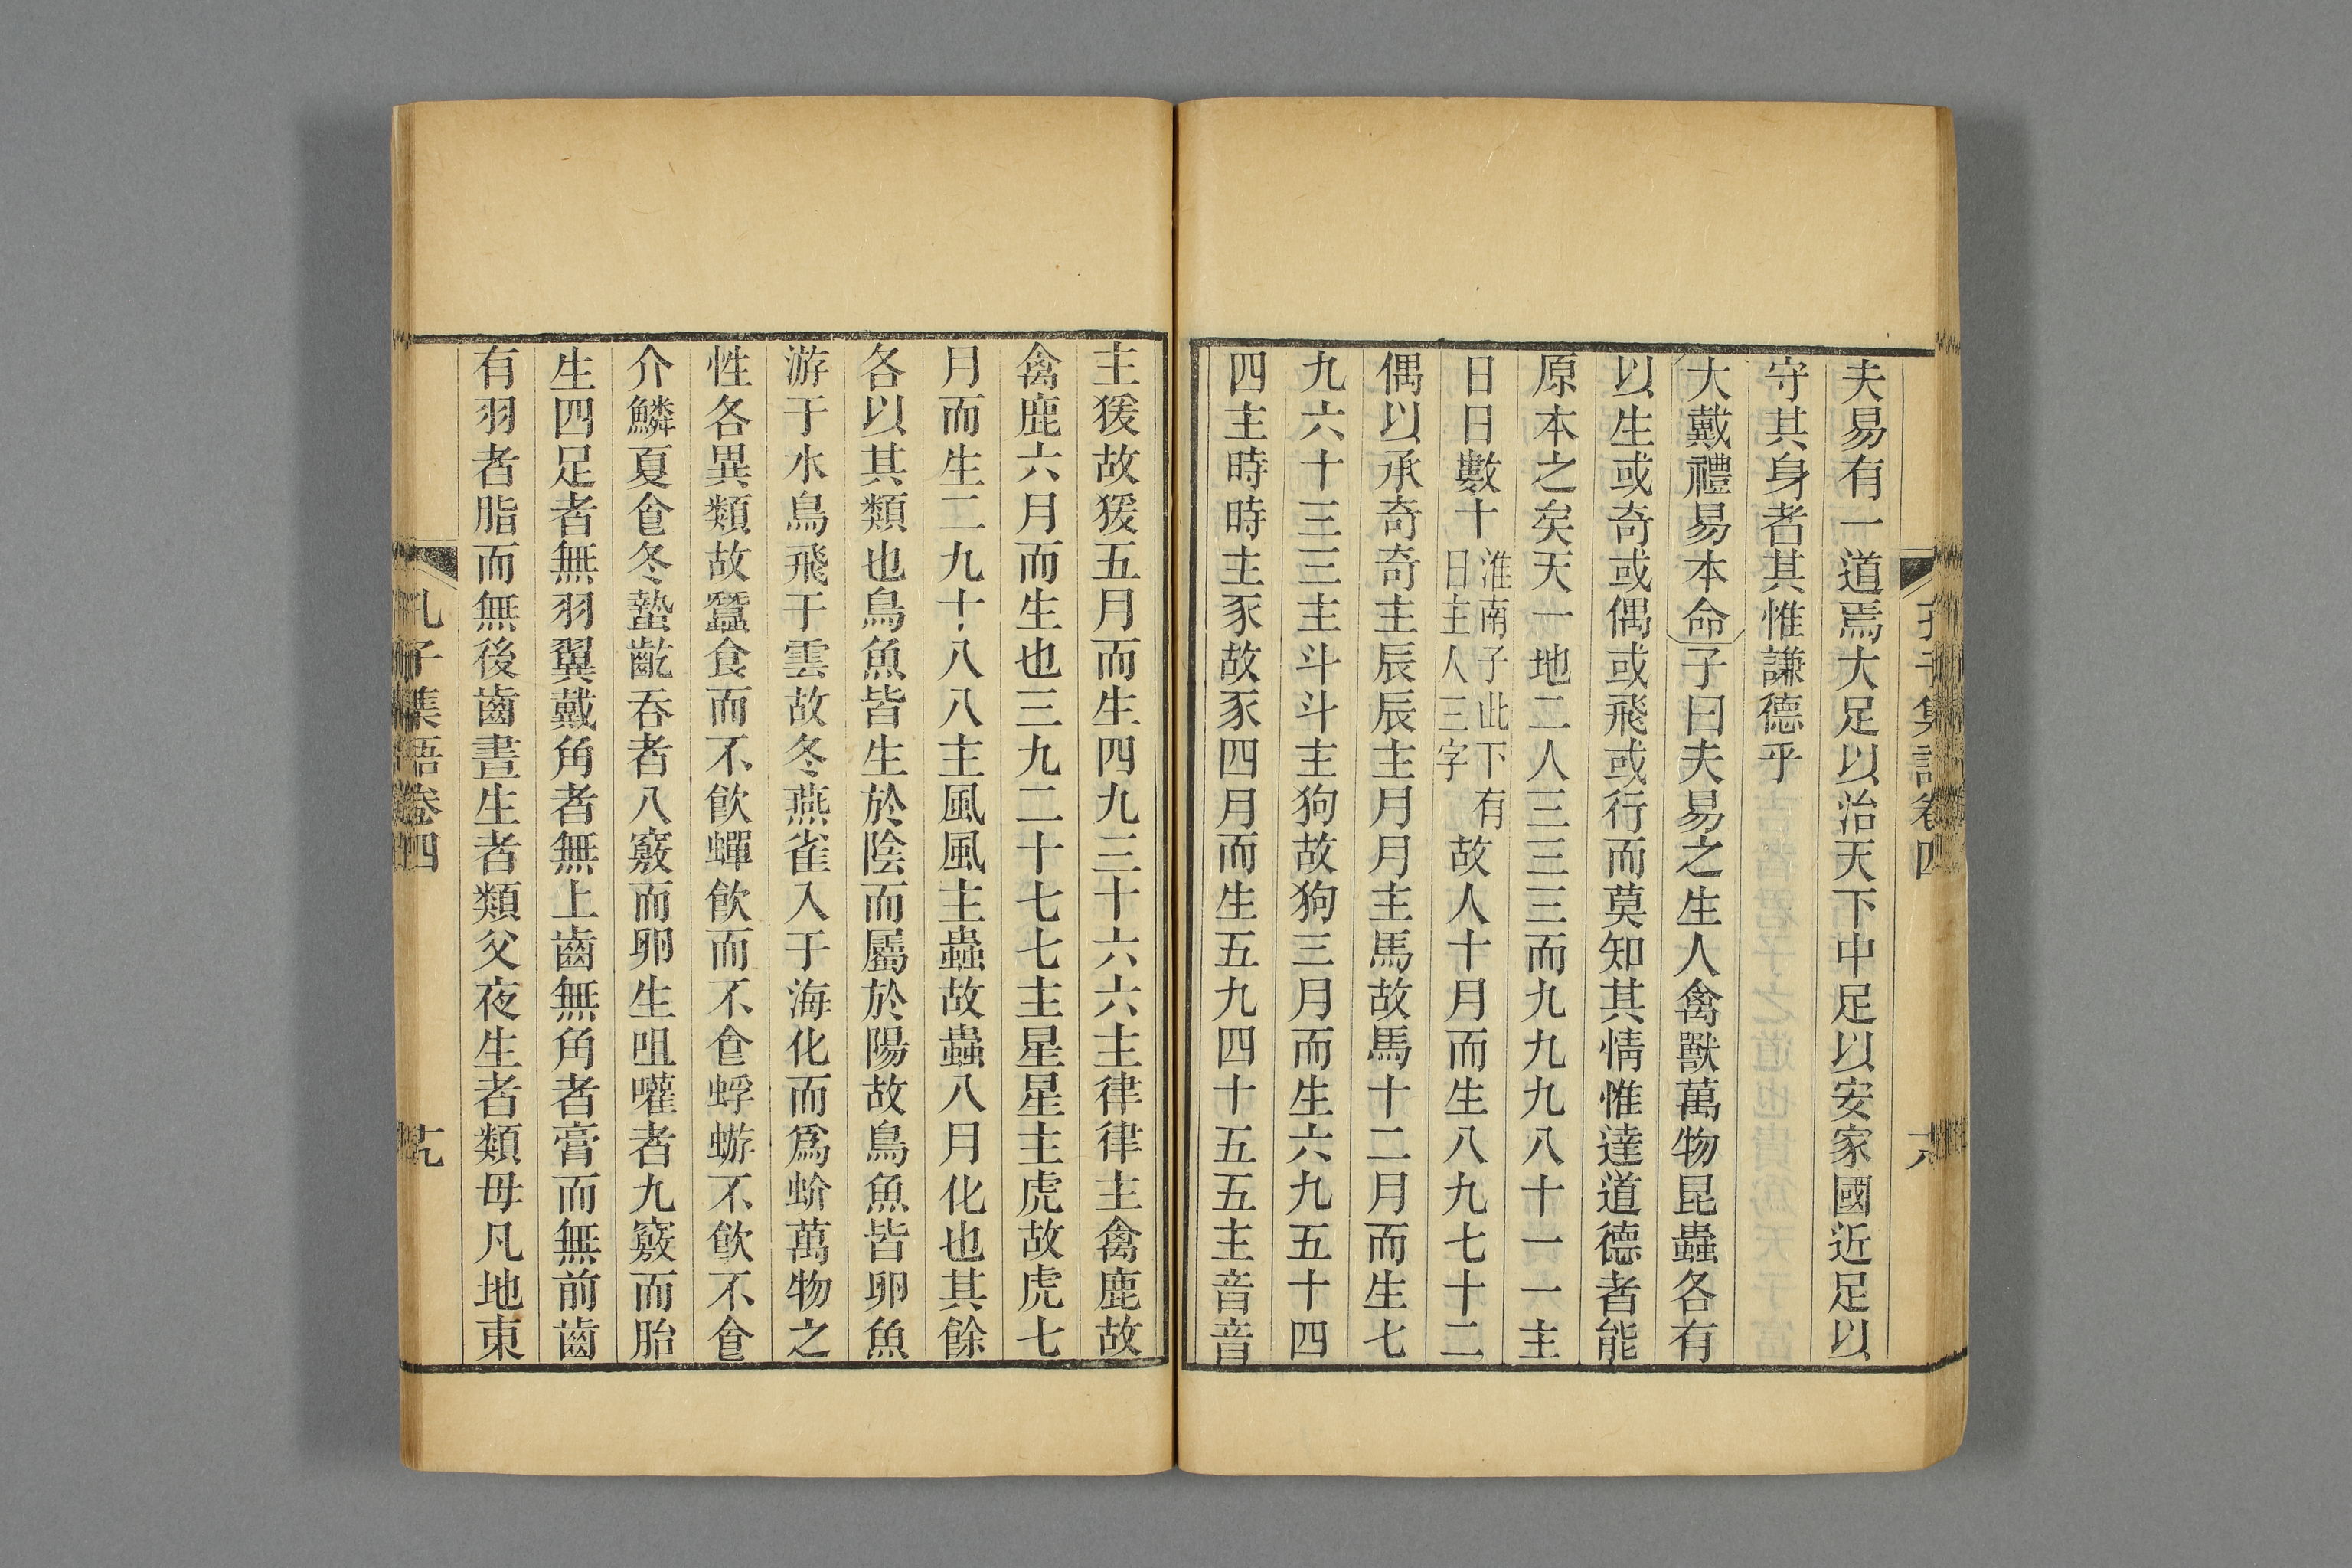 孔子集語卷四
夫易有一道焉大足以治天下中足以安家國近足以
守其身者其惟謙德乎
大戴禮易本命子曰夫易之生人禽獸萬物昆蟲各有
以生或奇或偶或飛或行而莫知其情惟達道德者能
原本之矣天一地二人三三三而九九九八十一一主
日日數十
淮南子此下有
日主人三字
故人十月而生八九七十二
偶以承奇奇主辰辰主月月主馬故馬十二月而生七
九六十三三主斗斗主狗故狗三月而生六九五十四
四主時時主豕故豕四月而生五九四十五五主音音
主猨故猨五月而生四九三十六六主律律主禽鹿故
禽鹿六月而生也三九二十七七主星星主虎故虎七
月而生二九十八八主風風主蟲故蟲八月化也其餘
各以其類也鳥魚皆生於陰而屬於陽故鳥魚皆卵魚
游于水鳥飛于雲故冬燕雀入于海化而爲蚧萬物之
性各異類故蠶食而不飮蟬飮而不食蜉蝣不飮不食
介鱗夏食冬蟄齕吞者八竅而卵生咀嚾者九竅而胎
生四足者無羽翼戴角者無上齒無角者膏而無前齒
有羽者脂而無後齒晝生者類父夜生者類母凡地東
孔子集語卷四